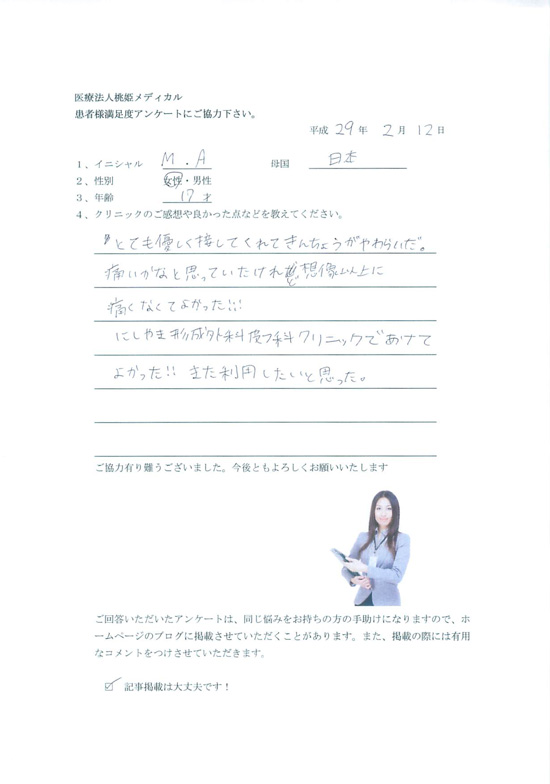 医療法人桃姫メディカル
患者様満足度アンケートにご協力下さい。
平成 29 年 2 月 12 日
1、イニシャル M . A 母国 日本
2、性別 女性・男性
3、年齢 17 才
4、クリニックのご感想や良かった点などを教えてください。
とても優しく接してくれてきんちょうがやわらいだ。
痛いかなと思っていたけれど想像以上に
痛くなくてよかった!!!
にしやま形成外科皮フ科クリニックであけて
よかった!! また利用したいと思った。
ご協力有り難うございました。今後ともよろしくお願いいたします
ご回答いただいたアンケートは、同じ悩みをお持ちの方の手助けになりますので、ホ
ームページのブログに掲載させていただくことがあります。また、掲載の際には有用
なコメントをつけさせていただきます。
☑ 記事掲載は大丈夫です！